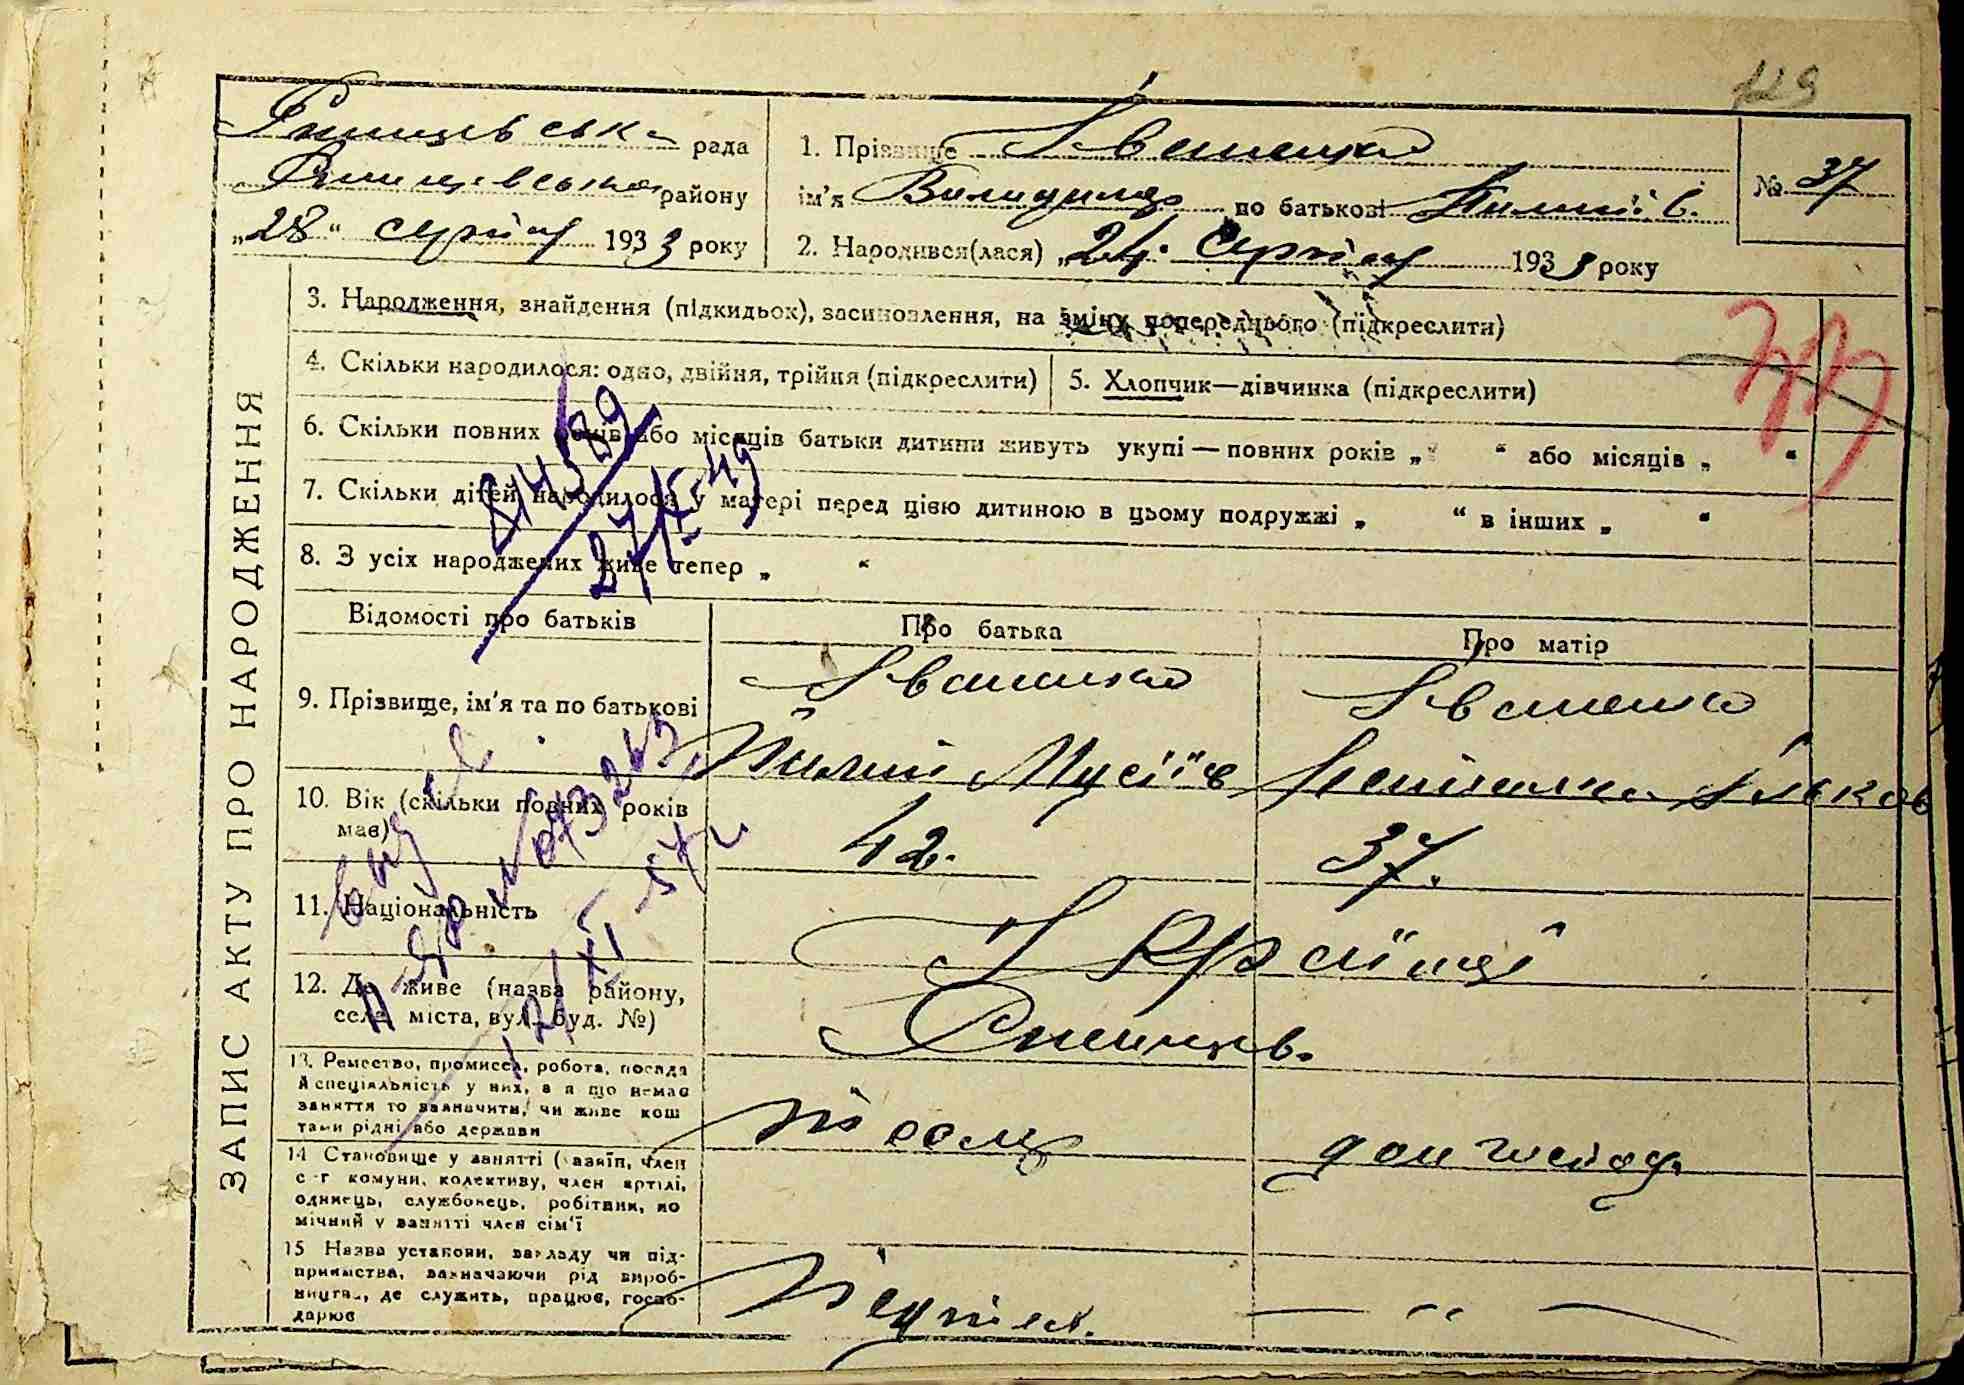 129
рада
району
„28“ серпня 1933 року
1. Прізвище Іваненко
ім'я Володимир по батькові
2. Народився(лася) „24. серпня 1933 року
№ 37
ЗАПИС АКТУ ПРО НАРОДЖЕННЯ
3. Народження, знайдення (підкидьок), засиновлення, на зміну попереднього (підкреслити)
4. Скільки народилося: одно, двійня, трійня (підкреслити)
5. Хлопчик—дівчинка (підкреслити)
6. Скільки повних років або місяців батьки дитини живуть укупі — повних років „ “ або місяців „ “
7. Скільки дітей народилося у матері перед цією дитиною в цьому подружжі „ “ в інших „ “
8. З усіх народжених живе тепер „ “
27/X-49
Відомості про батьків
Про батька
Про матір
9. Прізвище, ім'я та по батькові
Іваненко
Мусіїв
Іваненко
10. Вік (скільки повних років
має)
42.
37.
11. Національність
Українці
12. Де живе (назва району,
села, міста, вул., буд. №)
12/XI-57
13. Ремество, промисел, робота, посада
й спеціяльність у них, а я що немає
заняття то зазначити, чи живе кош
тами рідні або держави
дом господ.
14 Становище у занятті (хазяїн, член
с-г комуни, колективу, член артілі,
одинець, службовець, робітник, по
мічний у занятті член сім'ї
15 Назва установи, закладу чи під-
приємства, зазначаючи рід вироб-
ництва, де служить, працює, госпо-
дарює
— " —